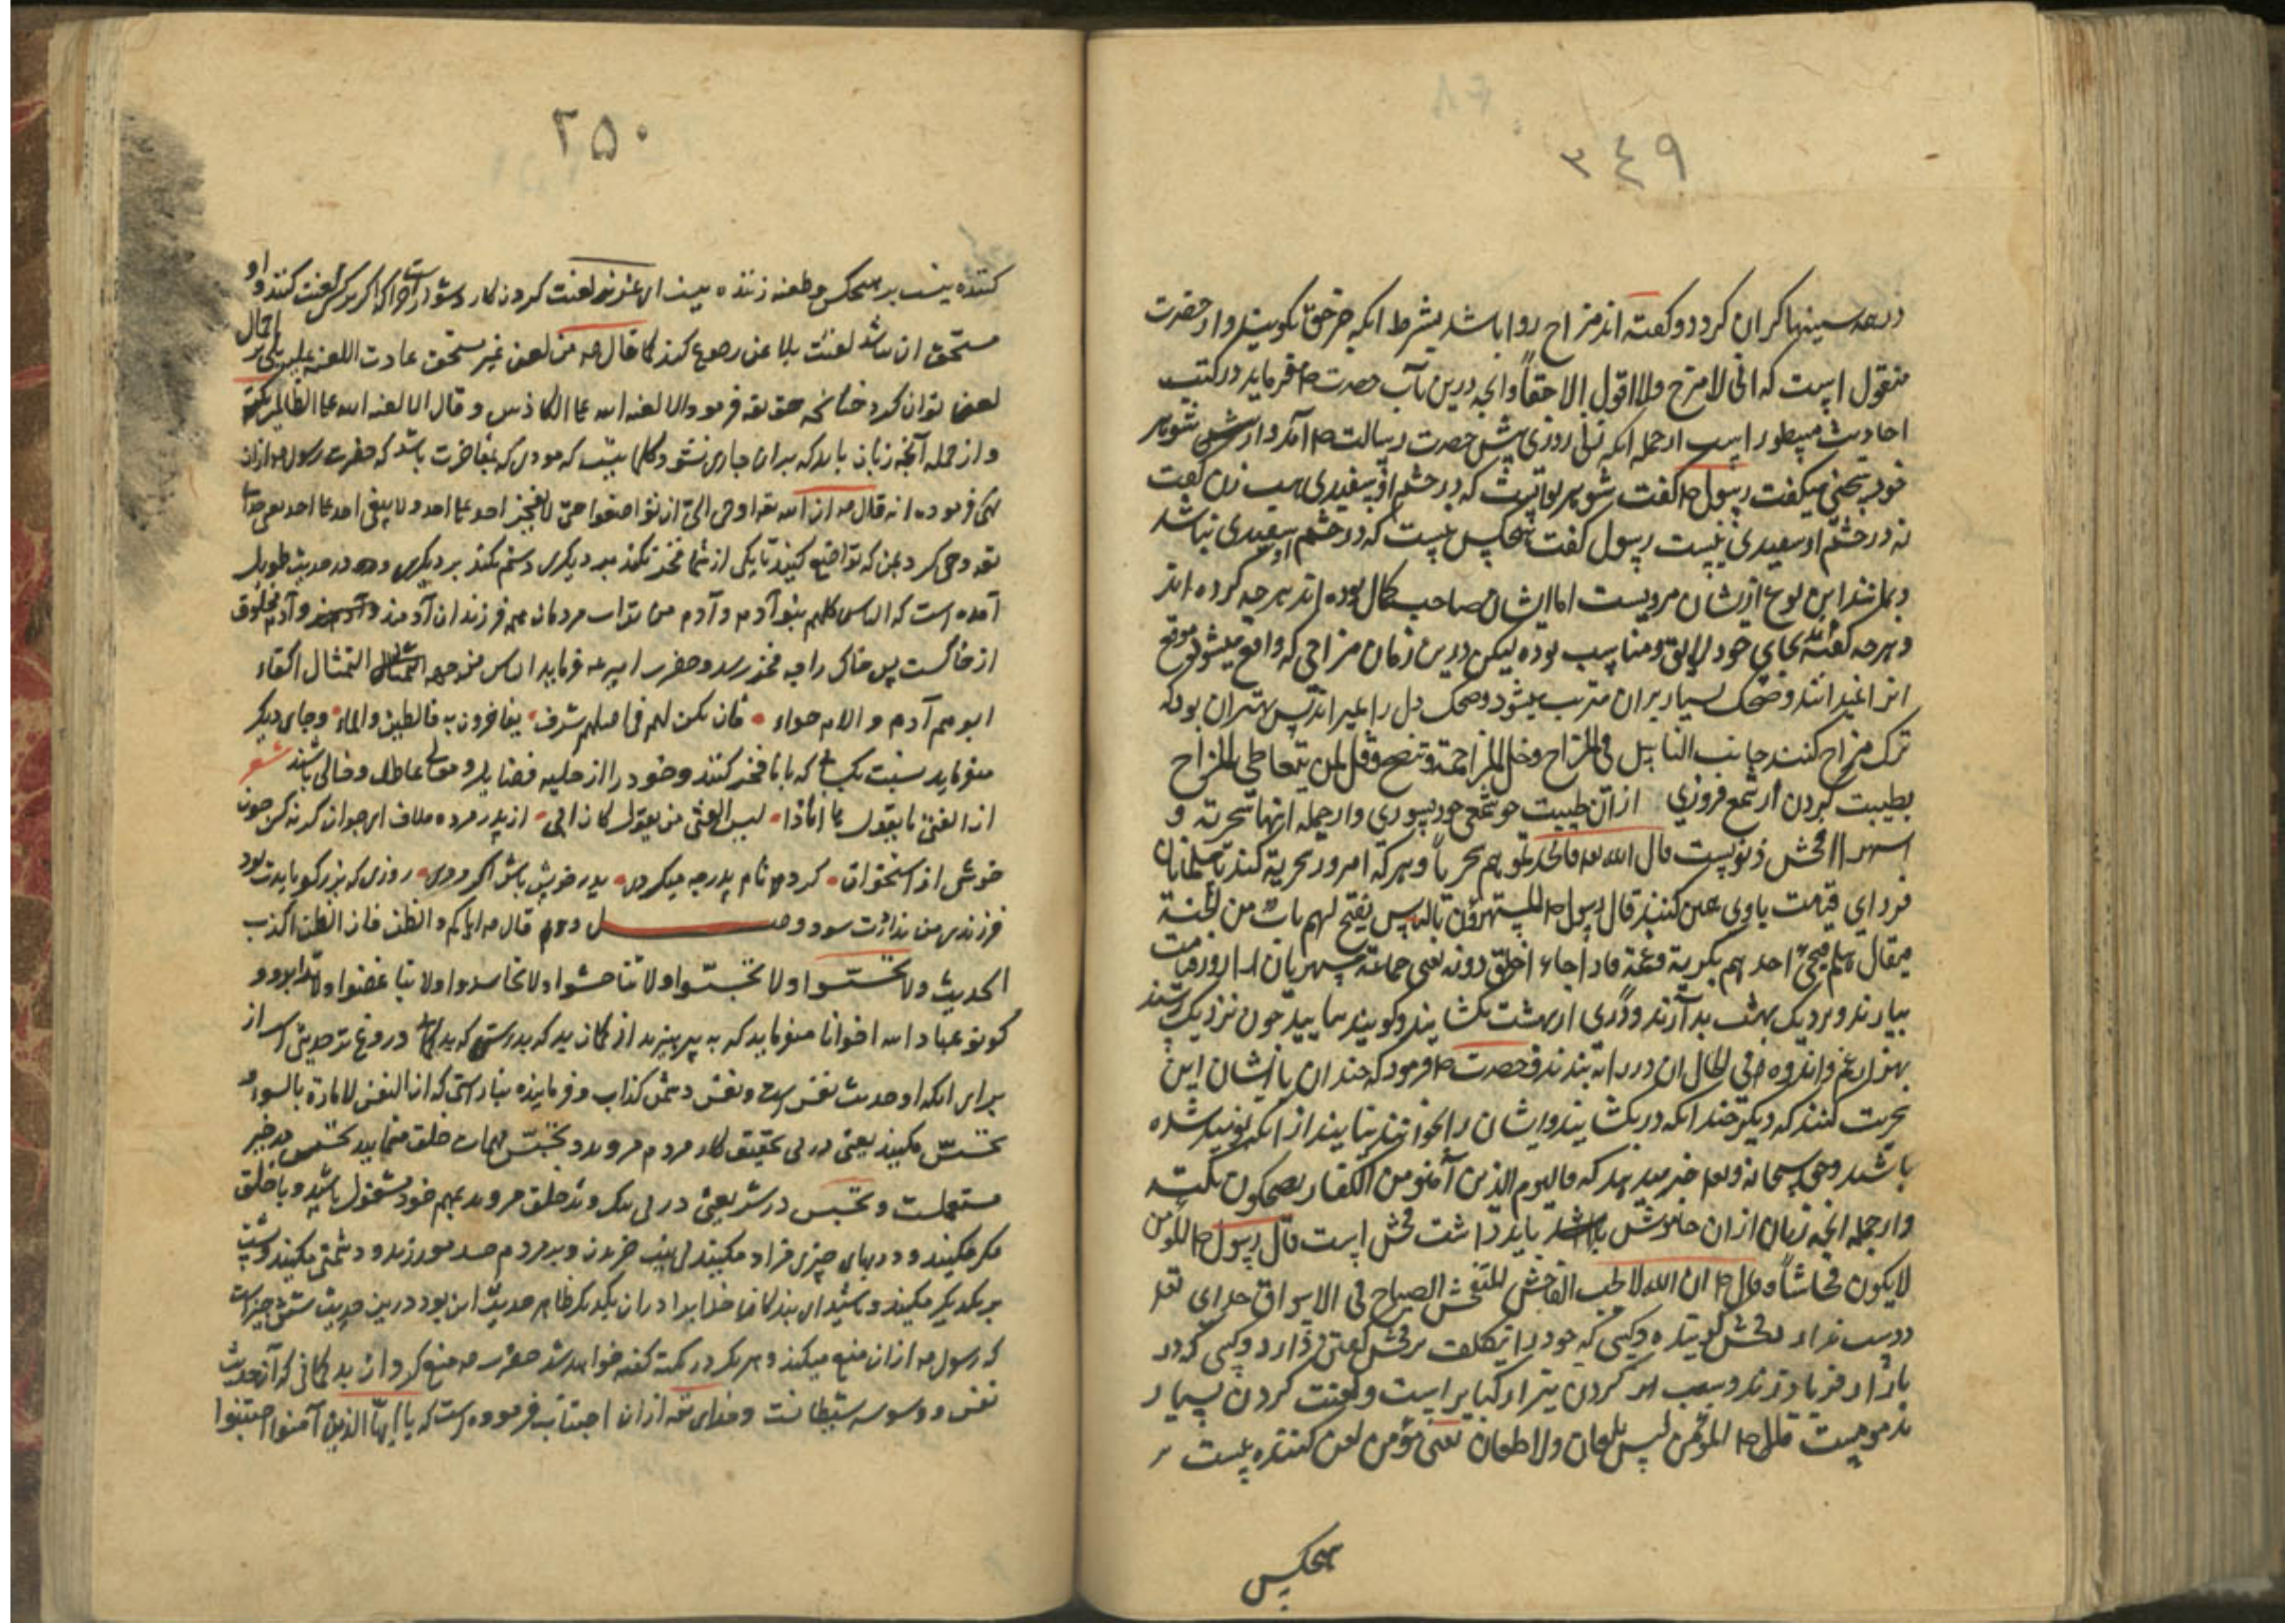 ۳۴۹
در همه سینها کران کردد و گفته اند مزاح روا باشد بشرط انکه جز حق نکویند و از حضرت
منقول است که انی لامزح ولا اقول الا حقاً و انچه درین باب حضرت ص فرماید در کتب
احادیث مسطور است ازجمله انکه زنی روزی پیش حضرت رسالت ص آمد و از شوهر
خود سخنی میکفت رسول ص کفت شوهر تو آنست که در چشم او سفیدی هست زن کفت
نه در چشم او سفیدی نیست رسول کفت هیچکس نیست که در چشم او سفیدی نباشد
و مانند این نوع ازیشان مرویست اما ایشان صاحب کمال بوده اند هر چه کرده اند
و هر چه کفته اند بجای خود لایق و مناسب بوده لیکن درین زمان مزاحی که واقع میشود موقع
انرا نمیدانند و ضحک بسیار بران مترتب میشود و ضحک دل را بمیراند پس بهتر ان بود که
ترک مزاح کنند جانب النابیل فی المزاح وخل المزاحمة وقل لمن یتعاطی المزاح
بطیبت کردن ار شمع فروزی از ان طیبت چو شمعی خود بسوزی و ازجمله انها سخریه و
قال الله تعه فاتخذتموهم سخریاً و هر که امروز سخریه کند با مسلمانان
فردای قیامت با وی همین کنند قال رسول ص المستهزؤن بالناس یفتح لهم باب من الجنة
فیقال هلم فیجئ احدهم بکربه وغمه فاذا جاء اغلق دونه یعنی جماعة
بیارند و نزدیک بهشت بدارند و دری از بهشت بکشایند و کویند بیایید چون نزدیک رسند
بهزاران غم و اندوه فی الحال ان در را به بندند و حضرت ص فرمود که چندان با ایشان این
سخریت کنند که دیکر چندانکه در بکشایند و ایشان را بخوانند نیایند از انکه نومید شده
باشند و حق سبحانه وتعه خبر میدهد که فالیوم الذین آمنوا من الکفار یضحکون نکته
و ازجمله انچه زبان از ان خاموش باید داشت فحش است قال رسول ص المؤمن
لایکون فحاشاً وقال ص ان الله لا یحب الفاحش المتفحش الصیاح فی الاسواق خدای تعه
دوست ندارد فحش کوینده و کسی که خود را بتکلف بر فحش کفتن دارد و کسی که در
بازار فریاد زند و سبب امر کردن نیز از کبایر است و لعنت کردن بسیار
مذمومست قال ص المؤمن لیس بلعان ولا طعان یعنی مؤمن لعن کننده نیست
هیچکس
۲۵۰
کننده نیست بر هیچکس و طعنه زننده نیست ای عزیز لعنت کردن کار دشوار است چرا که اکر بر کسی لعنت کنند و او
مستحق ان نباشد لعنت بلاعن رجوع کند کما قال ص من لعن غیر مستحق عادت اللعنه علیه
لعن توان کرد چنانچه حق تعه فرمود الا لعنة الله علی الکاذبین و قال الا لعنة الله علی الظالمین نکته
و از جمله آنچه زبان باید که بران جاری نشود کلماتیست که مودی که بمفاخرت باشد که حضرت رسول ص ازان
نهی فرموده انه قال ص ان الله تعه اوحی الیّ ان تواضعوا حتی لا یفخر احد علی احد ولا یبغی احد علی احد یعنی خدا
تعه وحی کرد بمن که تواضع کنید تا یکی از شما فخر نکند بر دیکری و ستم نکند بر دیکری و در حدیث طویل
آمده است که الناس کلهم بنو آدم و آدم من تراب مردمان همه فرزندان آدمند و آدم مخلوق
از خاکست پس خاک را چه فخر رسد و حضرت امیر ع فرماید الناس من جهة التمثال اکفاء
ابوهم آدم و الام حواء فان یکن لهم فی اصلهم شرف یفاخرون به فالطین والماء و جای دیکر
میفرماید نسبت بکسانی که بابا فخر کنند و خود را از حلیه فضایل و معالی عاطل و خالی باشند شعر
ان الفتی من یقول ها انا ذا لیس الفتی من یقول کان ابی از پدر مرده ملاف ای جوان کر نه سکی چون
خوشی از استخوان کردی نام پدر چه میکردی پدر خویش باش اکر مردی روزی که بزرکوارت بود
فرزندی من نداردت سود وصل دوم قال ص ایاکم والظن فان الظن اکذب
الحدیث ولا تحسسوا ولا تجسسوا ولا تناجشوا ولا تحاسدوا ولا تباغضوا ولا تدابروا و
کونوا عباد الله اخوانا میفرماید که به پرهیزید از کمان بد که بدرستی که بد کمانی دروغ ترحدیثی است از
برای انکه او حدیث نفس است و نفس دشمن کذاب و فرماینده بناراستی که ان النفس لامارة بالسوء و
تحسس مکنید یعنی در پی تحقیق کار مردم مروید و تجسس مهمات خلق منمایید تحسس در خبر
مستعملست و تجسس در شر یعنی در پی نیک و بد خلق مروید بمهم خود مشغول باشید و با خلق
مکر مکنید و در بهای چیزی زیاد مکنید بی نیت خریدن و بر مردم حسد مورزید و دشمنی مکنید و پشت
بر یکدیکر مکنید و باشید ای بندکان خدا برادران یکدیکر ظاهر حدیث این بود درین حدیث شش چیز است
که رسول ص ازان منع میکند و هر یک در نکته کفته خواهد شد حضرت ص منع کرد از بد کمانی که آن حدیث
نفس و وسوسه شیطانست و خدای تعه ازان اجتناب فرموده است که یا ایها الذین آمنوا اجتنبوا